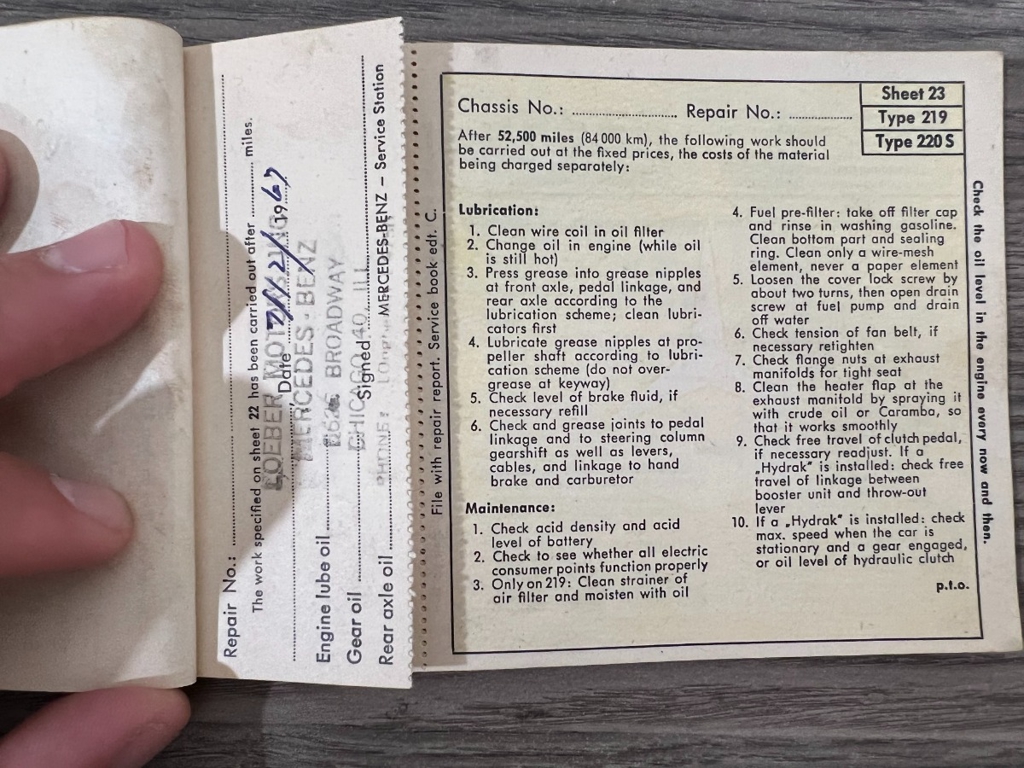 Repair No.:
The work specified on sheet 22 has been carried out after miles.
Date 7/12/1967
LOEBER MOTORS, INC.
MERCEDES-BENZ
BROADWAY
CHICAGO 40, ILL.
PHONE: LOng
Engine lube oil
Gear oil Signed
Rear axle oil MERCEDES-BENZ – Service Station
File with repair report. Service book edt. C.
Chassis No.: Repair No.:
Sheet 23
Type 219
Type 220 S
After 52,500 miles (84 000 km), the following work should
be carried out at the fixed prices, the costs of the material
being charged separately:
Lubrication:
1. Clean wire coil in oil filter
2. Change oil in engine (while oil
is still hot)
3. Press grease into grease nipples
at front axle, pedal linkage, and
rear axle according to the
lubrication scheme; clean lubri-
cators first
4. Lubricate grease nipples at pro-
peller shaft according to lubri-
cation scheme (do not over-
grease at keyway)
5. Check level of brake fluid, if
necessary refill
6. Check and grease joints to pedal
linkage and to steering column
gearshift as well as levers,
cables, and linkage to hand
brake and carburetor
Maintenance:
1. Check acid density and acid
level of battery
2. Check to see whether all electric
consumer points function properly
3. Only on 219: Clean strainer of
air filter and moisten with oil
4. Fuel pre-filter: take off filter cap
and rinse in washing gasoline.
Clean bottom part and sealing
ring. Clean only a wire-mesh
element, never a paper element
5. Loosen the cover lock screw by
about two turns, then open drain
screw at fuel pump and drain
off water
6. Check tension of fan belt, if
necessary retighten
7. Check flange nuts at exhaust
manifolds for tight seat
8. Clean the heater flap at the
exhaust manifold by spraying it
with crude oil or Caramba, so
that it works smoothly
9. Check free travel of clutch pedal,
if necessary readjust. If a
„Hydrak" is installed: check free
travel of linkage between
booster unit and throw-out
lever
10. If a „Hydrak" is installed: check
max. speed when the car is
stationary and a gear engaged,
or oil level of hydraulic clutch
p.t.o.
Check the oil level in the engine every now and then.